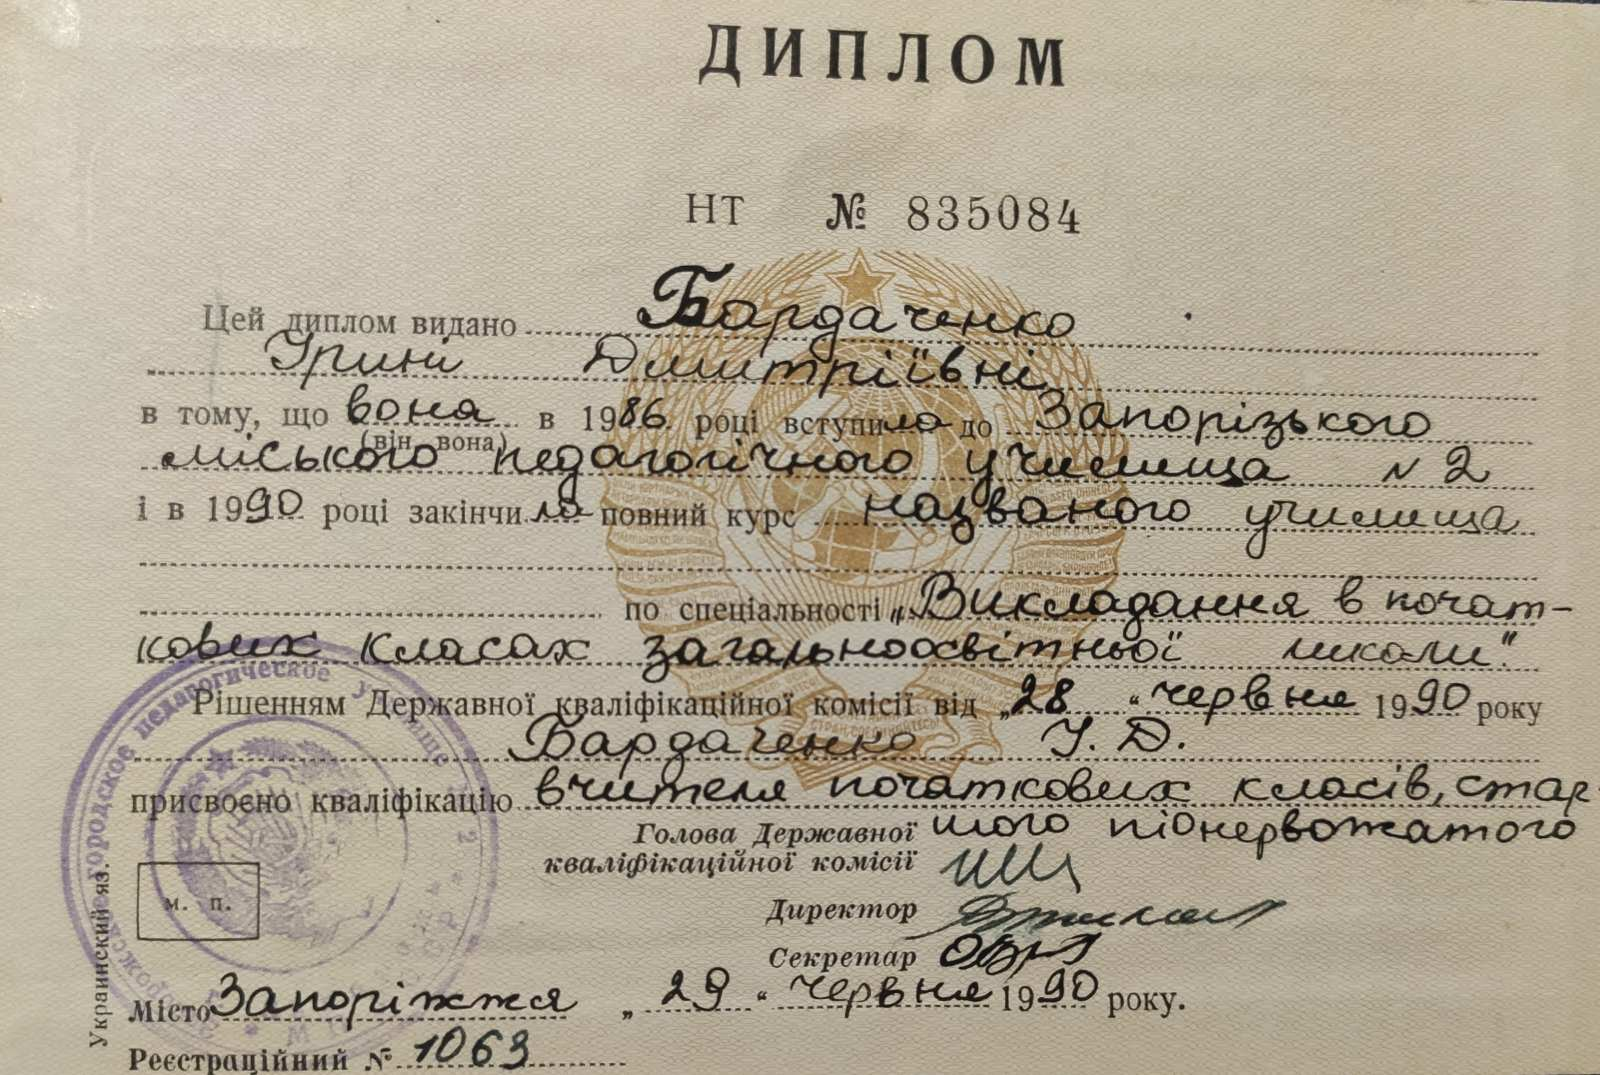 ДИПЛОМ
НТ № 835084
Цей диплом видано Бардаченко
Ірині Дмитріївні
в тому, що вона в 1986 році вступила до Запорізького
(він, вона)
міського педагогічного училища № 2
і в 1990 році закінчила повний курс названого училища
по спеціальності „Викладання в почат-
кових класах загальноосвітньої школи".
Рішенням Державної кваліфікаційної комісії від „28" червня 1990 року
Бардаченко І. Д.
присвоєно кваліфікацію вчителя початкових класів, стар-
шого піонервожатого
Голова Державної
кваліфікаційної комісії
Директор
Секретар
м. п.
Місто Запоріжжя „29" червня 1990 року.
Реєстраційний № 1063
Украинский яз.
городское педагогическое училище № 2